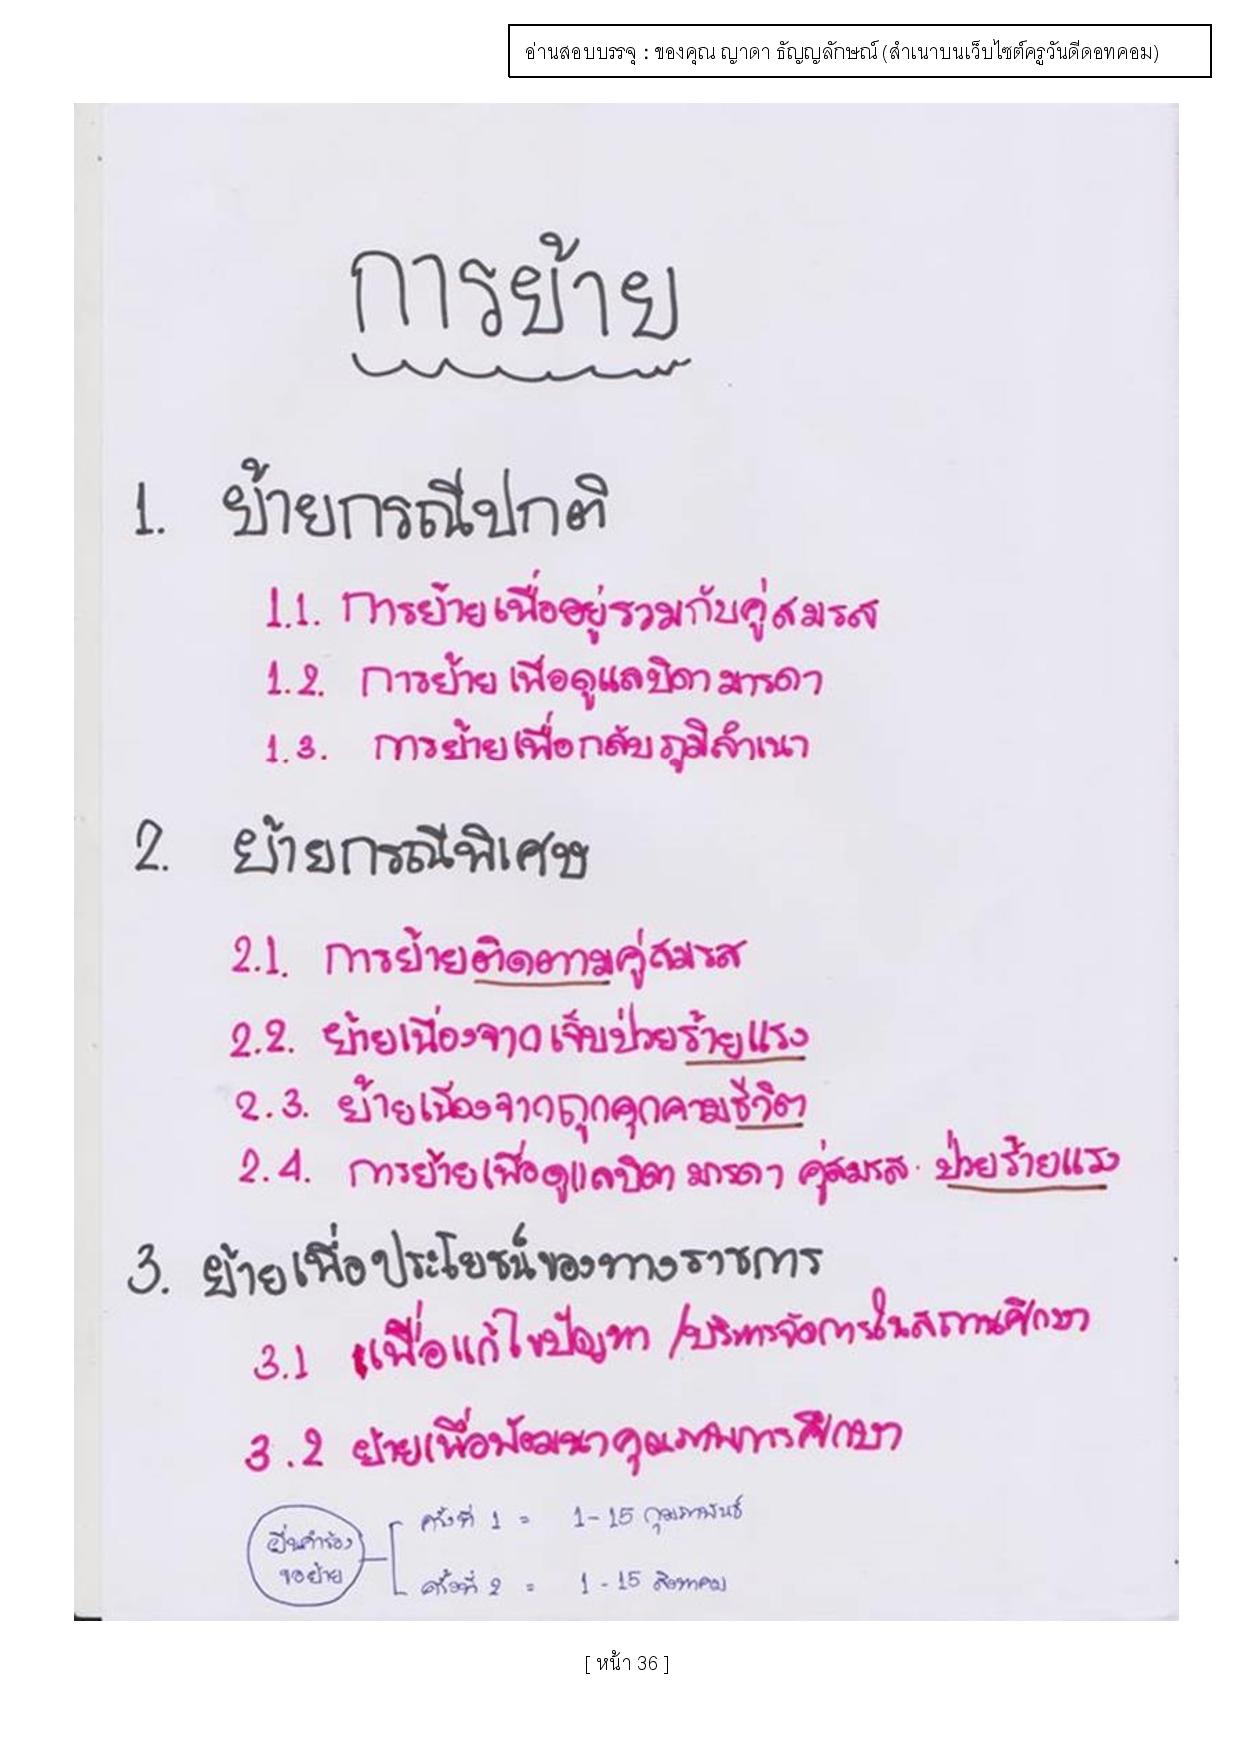 อ่านสอบบรรจุ : ของคุณ ญาดา ธัญญลักษณ์ (สำเนาบนเว็บไซต์ครูวันดีดอทคอม)
การย้าย
1. ย้ายกรณีปกติ
1.1. การย้ายเพื่ออยู่รวมกับคู่สมรส
1.2. การย้ายเพื่อดูแลบิดา มารดา
1.3. การย้ายเพื่อกลับภูมิลำเนา
2. ย้ายกรณีพิเศษ
2.1. การย้ายติดตามคู่สมรส
2.2. ย้ายเนื่องจากเจ็บป่วยร้ายแรง
2.3. ย้ายเนื่องจากถูกคุกคามชีวิต
2.4. การย้ายเพื่อดูแลบิดา มารดา คู่สมรส. ป่วยร้ายแรง
3. ย้ายเพื่อประโยชน์ของทางราชการ
3.1 เพื่อแก้ไขปัญหา /บริหารจัดการในสถานศึกษา
3.2 ย้ายเพื่อพัฒนาคุณภาพการศึกษา
ยื่นคำร้อง
ขอย้าย
ครั้งที่ 1 = 1-15 กุมภาพันธ์
ครั้งที่ 2 = 1-15 สิงหาคม
[ หน้า 36 ]